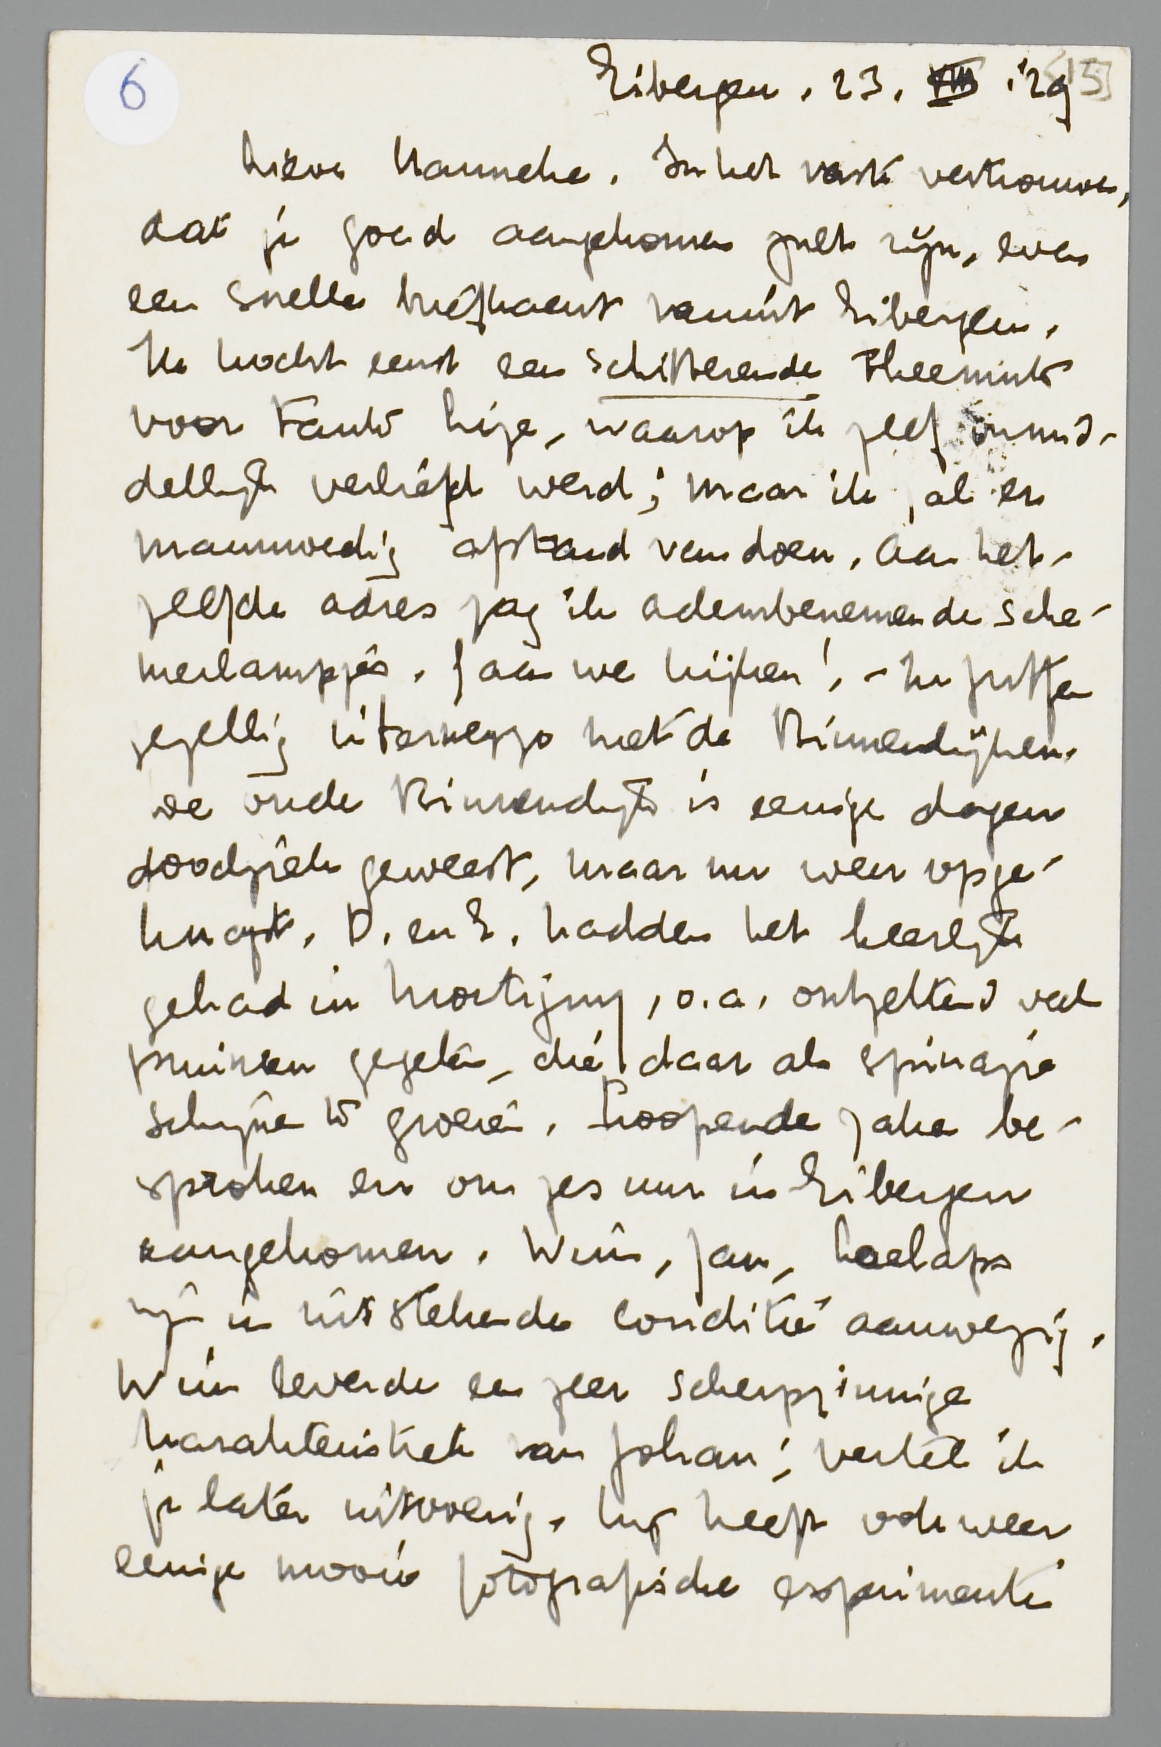 6
Eibergen, 23. VIII '29
[15]
Lieve Hanneke. In het vaste vertrouwen,
dat je goed aangekomen zult zijn, even
een snelle briefkaart vanuit Eibergen.
Ik kocht eerst een schitterende theemuts
voor Tante Lize, waarop ik zelf onmid-
dellijk verliefd werd; maar ik zal er
manmoedig afstand van doen. Aan het-
zelfde adres zag ik adembenemende sche-
merlampjes. Gaan we kijken! - In Zutfen
gezellig intermezzo met de Binnendijken.
De oude Binnendijk is eenige dagen
doodziek geweest, maar nu weer opge-
knapt. D. en E. hadden het heerlijk
gehad in Martigny, o.a. ontzettend veel
pruimen gegeten, die daar als spinazie
schijnen te groeien. Loopende zaken be-
sproken en om zes uur in Eibergen
aangekomen. Wim, Jan,
zijn in uitstekende conditie aanwezig.
Wim leverde een zeer scherpzinnige
karakteristiek van Johan; vertel ik
je later uitvoerig. Hij heeft ook weer
eenige mooie fotografische experimenten